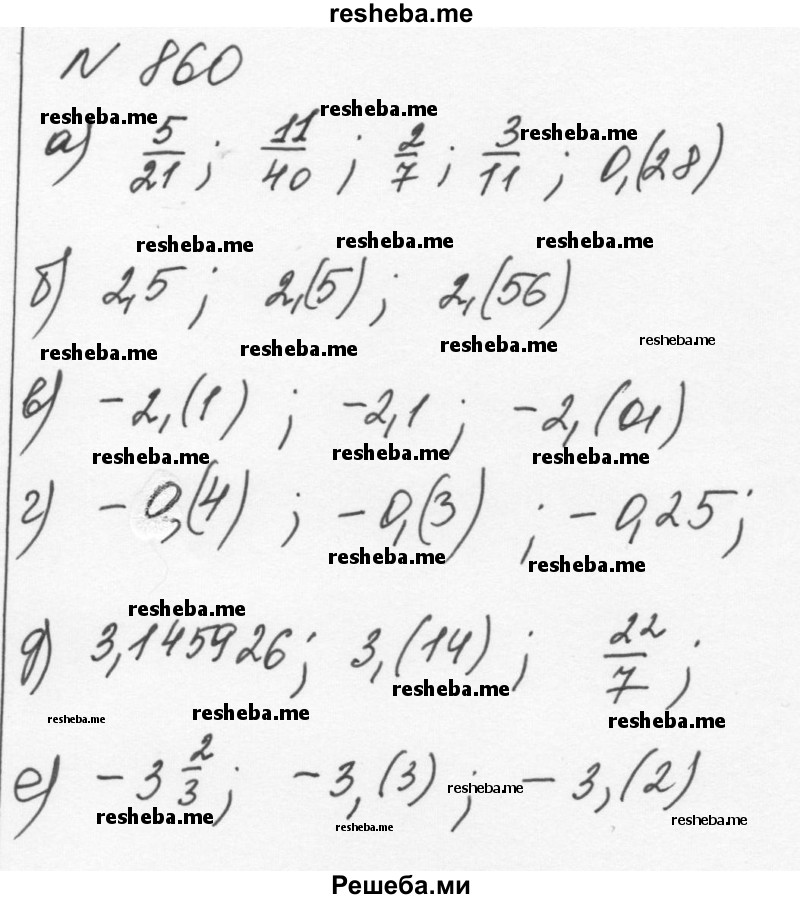 resheba.me
N 860
resheba.me resheba.me resheba.me
а) 5/21 ; 11/40 ; 2/7 ; 3/11 ; 0,(28)
resheba.me resheba.me resheba.me
б) 2,5 ; 2,(5) ; 2,(56)
resheba.me resheba.me resheba.me resheba.me
в) -2,(1) ; -2,1 ; -2,(01)
resheba.me resheba.me resheba.me
г) -0,(4) ; -0,(3) ; -0,25 ;
resheba.me resheba.me
resheba.me
д) 3,145926 ; 3,(14) ; 22/7 ;
resheba.me
resheba.me resheba.me resheba.me
е) -3 2/3 ; -3,(3) ; -3,(2)
resheba.me
resheba.me resheba.me resheba.me
Решеба.ми